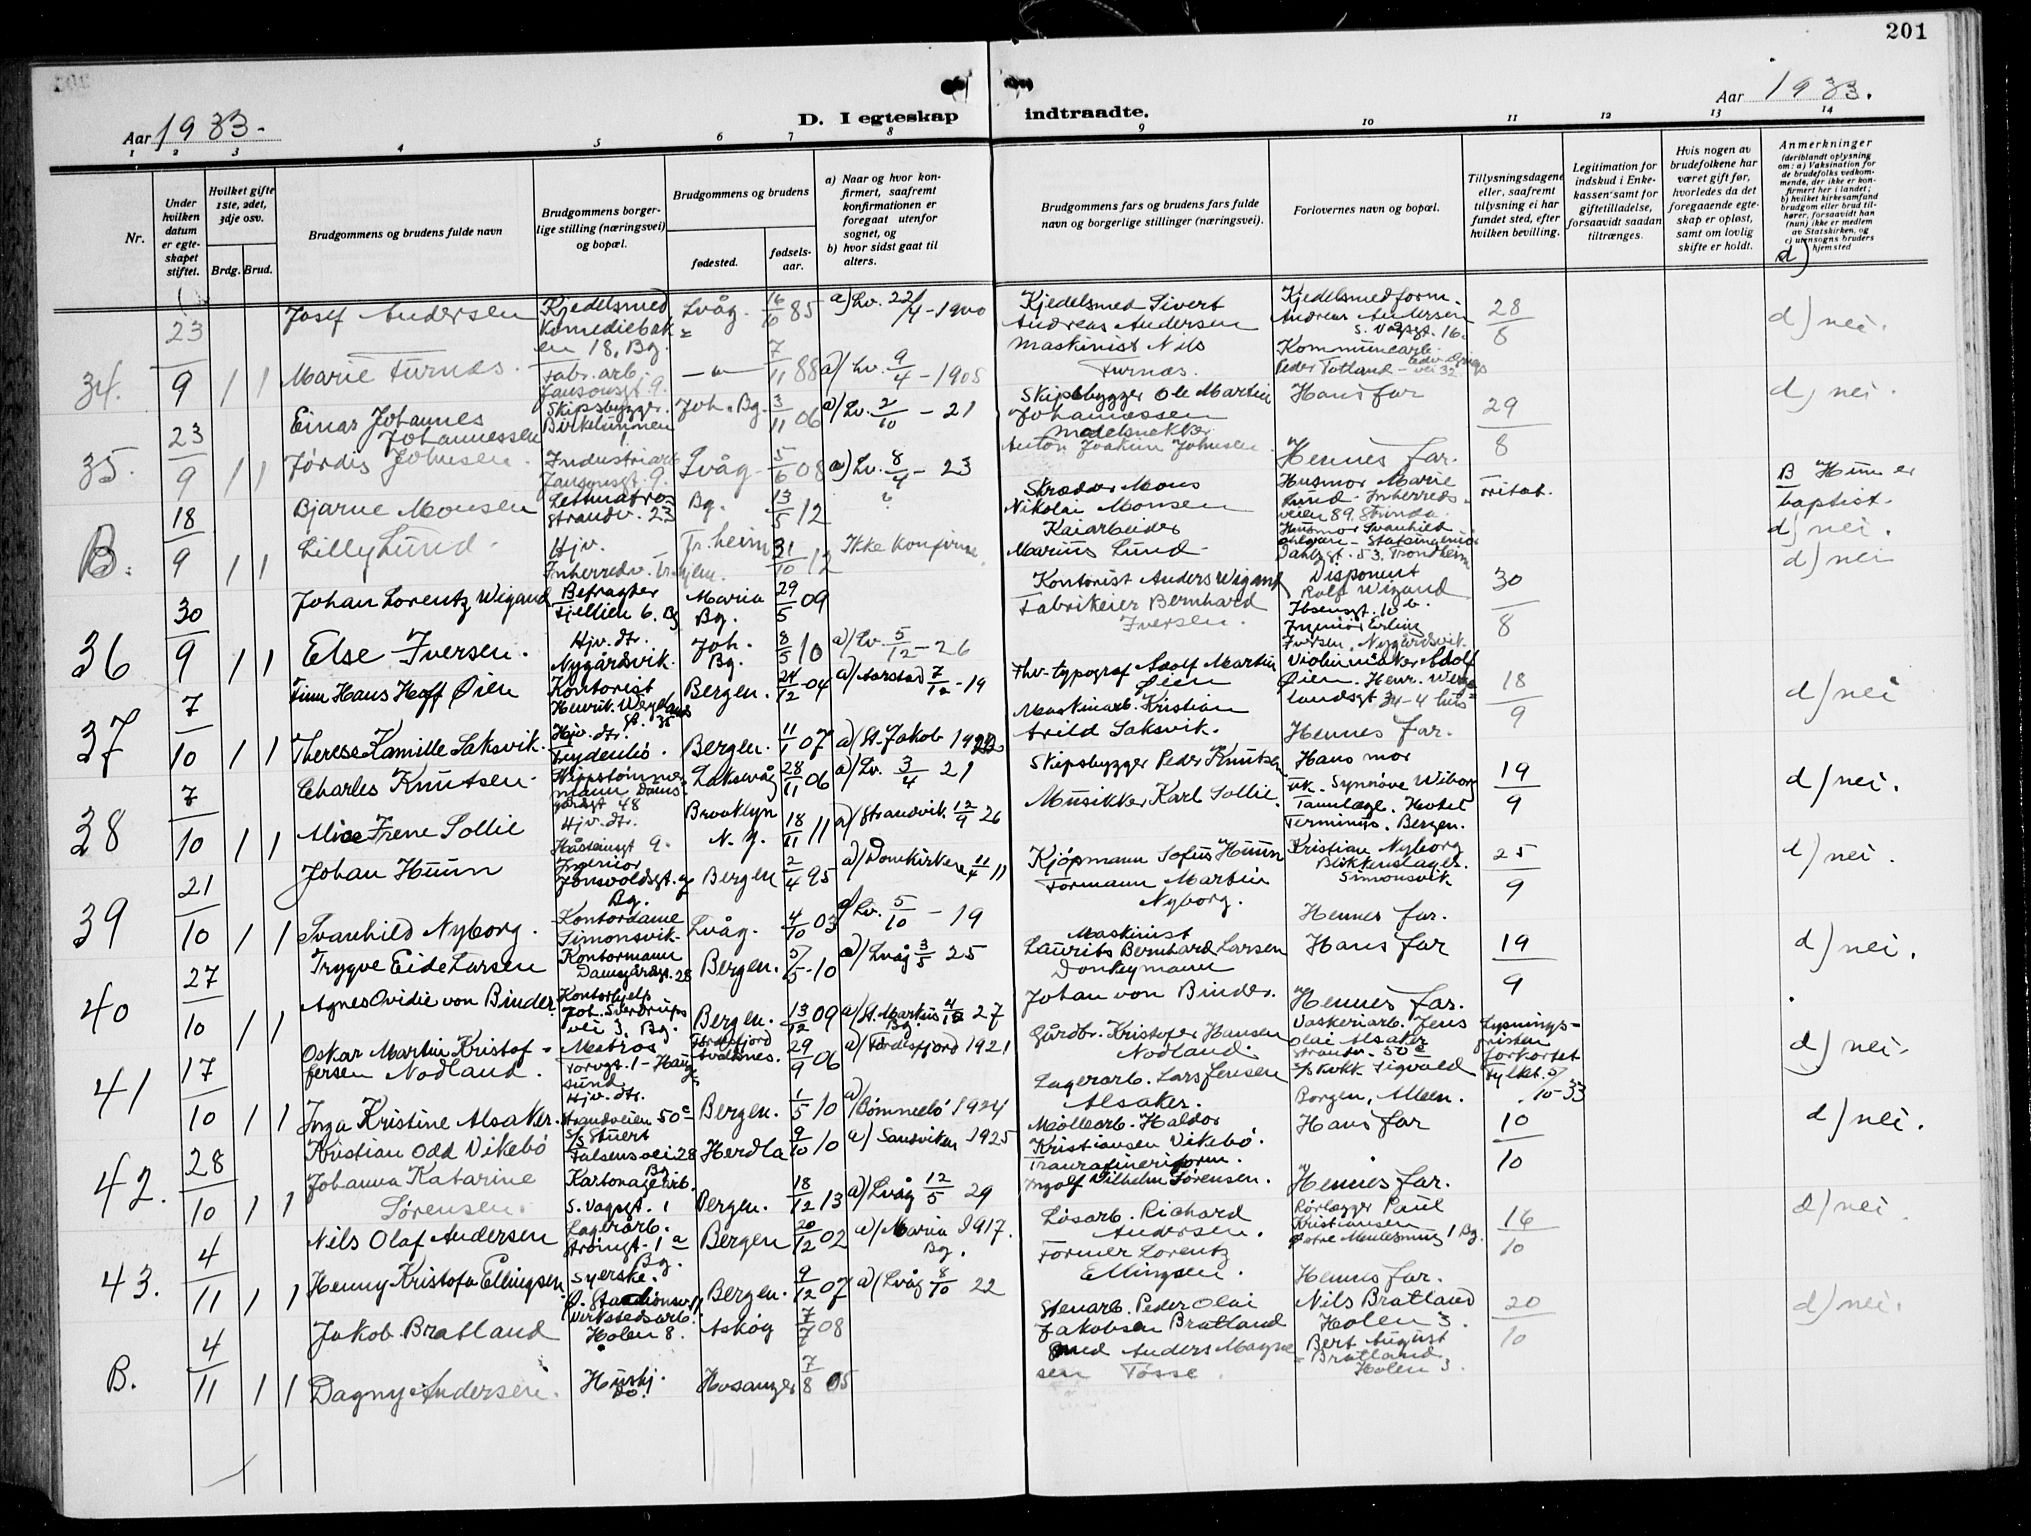 201
Aar 1933.
D. I egteskap indtraadte.
Aar 1933.
1 2 3 4 5 6 7 8 9 10 11 12 13 14
Nr.
Under hvilken datum er egteskapet stiftet.
Hvilket gifte 1ste, 2det, 3dje osv.
Brdg. Brud.
Brudgommens og brudens fulde navn
Brudgommens borgerlige stilling (næringsvei) og bopæl.
Brudgommens og brudens
fødested.
fødselsaar.
a) Naar og hvor konfirmert, saafremt konfirmationen er foregaat utenfor sognet, og
b) hvor sidst gaat til alters.
Brudgommens fars og brudens fars fulde navn og borgerlige stillinger (næringsvei).
Forlovernes navn og bopæl.
Tillysningsdagene eller, saafremt tillysning ei har fundet sted, efter hvilken bevilling.
Legitimation for indskud i Enkekassen samt for giftetilladelse, forsaavidt saadan tiltrænges.
Hvis nogen av brudefolkene har været gift før, hvorledes da det foregaaende egteskap er opløst, samt om lovlig skifte er holdt.
Anmerkninger
(deriblandt oplysning om: a) Vaksination for de brudefolks vedkommende, der ikke er konfirmert her i landet; b) hvilket kirkesamfund brudgom eller brud tilhører, forsaavidt han (hun) ikke er medlem av Statskirken, og c) utensogns bruders hjemsted
d)
34. 23/9 1 1
Josef Andersen
Kjedelsmed
en 18, Bg.
Lvåg. 16/6 85
a) Lv. 22/4 - 1900
Kjedelsmed Sivert
Andreas Andersen
Kjedelsmed form.
Andreas Andersen
28/8
d) nei.
Marie Furnæs.
Fabr. arb.
Jansonsgt. 9.
- " - 7/11 88
a) Lv. 9/4 - 1905
Maskinist Nils
Furnæs.
Kommunearb.
Peder Totland
35. 23/9 1 1
Einar Johannes
Johannessen
Skipsbygger.
Birkelunnen
1
Joh. Bg. 3/11 06
a) Lv. 2/10 - 21
Skipsbygger Ole Martin
Johannessen
Hans far
29/8
d) nei.
Jørdis Johnsen.
Industriarb
Jansonsgt. 9.
Lvåg 5/6 08
a) Lv. 8/4 - 23
Modelsnekker
Anton Joakim Johnsen
Hennes far.
B. 18/9 1 1
Bjarne Monsen
Letmatros
Strandv. 23
Bg. 13/5 12
Skrædder Mons
Nikolai Monsen
Husmor Marie
Lund. Inherreds
veien 89. Strinda.
B Hun er
baptist.
d) nei.
Lilly Lund
Hjv.
Tr.heim 31/10 12
Ikke konfirm.
Kaiarbeider
Marius Lund
Dahlsgt. 53. Trondheim
d) nei
36 30/9 1 1
Johan Lorentz Wigand
Befragter
Fjellien 6. Bg
Maria
Bg.
29/5 09
Kontorist Anders Wigand
Disponent
Rolf Wigand
Ibsensgt. 10 b.
30/8
Else Iversen.
Hjv. dtr.
Nygårdsvik.
Joh.
Bg.
8/5 10
a) Lv. 5/12 - 26
Fabrikeier Bernhard
Iversen.
Ingeniør Erling
Iversen, Nygårdsvik.
37 7/10 1 1
Finn Hans Hoff Øien
Kontorist
Henrik Wergelands
gt. 35
Bergen. 24/12 04
a) Aarstad 7/12 - 19
Fhv. typograf Adolf Martin
Øien
Violinmaker Adolf
Øien. Henr. Werge
landsgt 34
18/9
d) nei
Therese Kamille Saksvik.
Hjv. dtr.
Frydenbø.
Bergen. 11/1 07
a) St. Jakob
Maskinarb. Kristian
Arild Saksvik.
Hennes far.
38 7/10 1 1
Charles Knutsen
Damsgårdsgt 48
Laksevåg 28/11 06
a) Lv. 3/4 21
Skipsbygger Peder Knutsen
Hans mor
19/9
d) nei.
Alice Irene Sollie
Hjv. dtr.
Håsteinsgt 9.
Brooklyn
N. Y.
18/11 11
a) Strandvik 12/9 26
Musikker Karl Sollie.
frk. Synnøve Wiborg
Tannlæge. Hotel
Terminus. Bergen.
39 21/10 1 1
Johan Huun
Ingeniør
Bg.
Bergen 2/4 95
a) Domkirken 11/4 11
Kjøpmann Sofus Huun
Kristian Nyborg
Blikkenslager.
Simonsvik
25/9
d) nei.
Svanhild Nyborg.
Kontordame
Simonsvik
Lvåg. 4/10 03
a) Lv. 5/10 - 19
Formann Martin
Nyborg.
Hennes far.
40 27/10 1 1
Trygve Eide Larsen
Kontormann
Damsgårdsgt. 28
Bergen. 5/5 - 10
a) Lvåg 3/5 25
Maskinist
Laurits Bernhard Larsen
Hans far
19/9
d) nei.
Agnes Ovidie von Binder
Kontorhjelp
Joh. Sverdrups
vei 3. Bg.
Bergen. 13/12 09
a) St. Markus 4/12 27
Bg.
Donkeymann
Johan von Binder.
Hennes far.
41 17/10 1 1
Oskar Martin Kristof-
fersen Nodland.
Matros
Torvgt. 1 - Hauge
sund
29/9 06
a) Førdesfjord 1921
Gårdbr. Kristofer Hansen
Nodland.
Vaskeriarb. Jens
Olai Alsaker
Strandv. 50 a
Lysnings-
fristen
forkortet
Fylket. 5/10-33
d) nei.
Inga Kristine Alsaker.
Hjv. dtr.
Strandveien 50 a
Bergen. 1/5 10
a) Bømmelø 1924
Lagerarb. Lars Jensen
Alsaker.
Sigvald
Borgen, Alleen.
42. 28/10 1 1
Kristian Odd Vikebø
Stuert
Falsens vei 28
Bg.
Herdla 9/10 10
a) Sandviken 1925
Møllearb. Haldor
Kristiansen Vikebø.
Hans far
10/10
d) nei.
Johanna Katarine
Sørensen.
Kartonagearb.
S. Vågsgt. 1
Bergen. 18/12 13
a) Lvåg 12/5 29
Tranrafineriform.
Ingolf Vilhelm Sørensen.
Hennes far.
43. 4/11 1 1
Nils Olaf Andersen
Lagerarb.
Bg.
Bergen 20/12 02
a) Maria 1917.
Bg.
Løsarb. Richard
Andersen.
Rørlegger Paul
Kristiansen
16/10
d) nei.
Henny Kristofa Ellingsen.
Syerske.
Bergen. 9/12 07
a) Lvåg 8/10 22
Former Lorentz
Ellingsen.
Hennes far.
B. 4/11 1 1
Jakob Bratland
Verkstedsarb.
Holen 8.
Askøy 7/7 08
Stenarb. Peder Olai
Jakobsen Bratland
Nils Bratland
Holen 3.
20/10
d) nei.
Dagny Andersen.
Hushj.
do.
Hosanger 7/8 05
Smed Anders Magne
sen Tosse.
Bert August
Bratland
Holen 3.